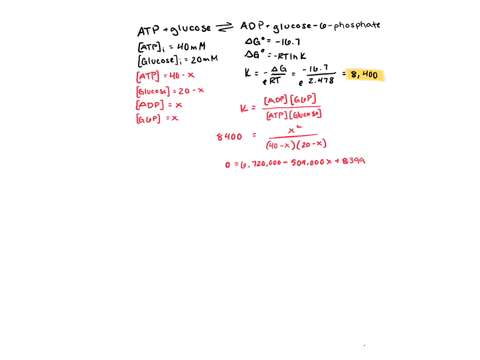 ATP + glucose ⇌ ADP + glucose-6-phosphate
[ATP]i = 40mM
[Glucose]i = 20mM
[ATP] = 40 - x
[Glucose] = 20 - x
[ADP] = x
[G6P] = x
ΔG° = -16.7
ΔG° = -RT ln K
K = e^(-ΔG/RT) = e^(-16.7/2.478) = 8,400
K = [ADP][G6P] / [ATP][Glucose]
8400 = x² / (40-x)(20-x)
0 = 6,720,000 - 504,000x + 8399